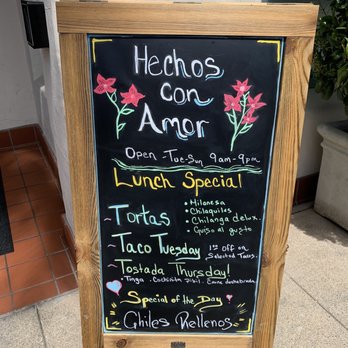 Hechos
con
Amor
Open - Tue-Sun 9am-9pm
Lunch Special
• Milanesa
• Chilaquiles
Tortas
• Chilanga delux.
• Guiso al gusto
Taco Tuesday 1$ off on
Selected Tacos.
Tostada Thursday!
• Tinga - Cochinita Pibil - Carne deshebrada
Special of the Day
Chiles Rellenos